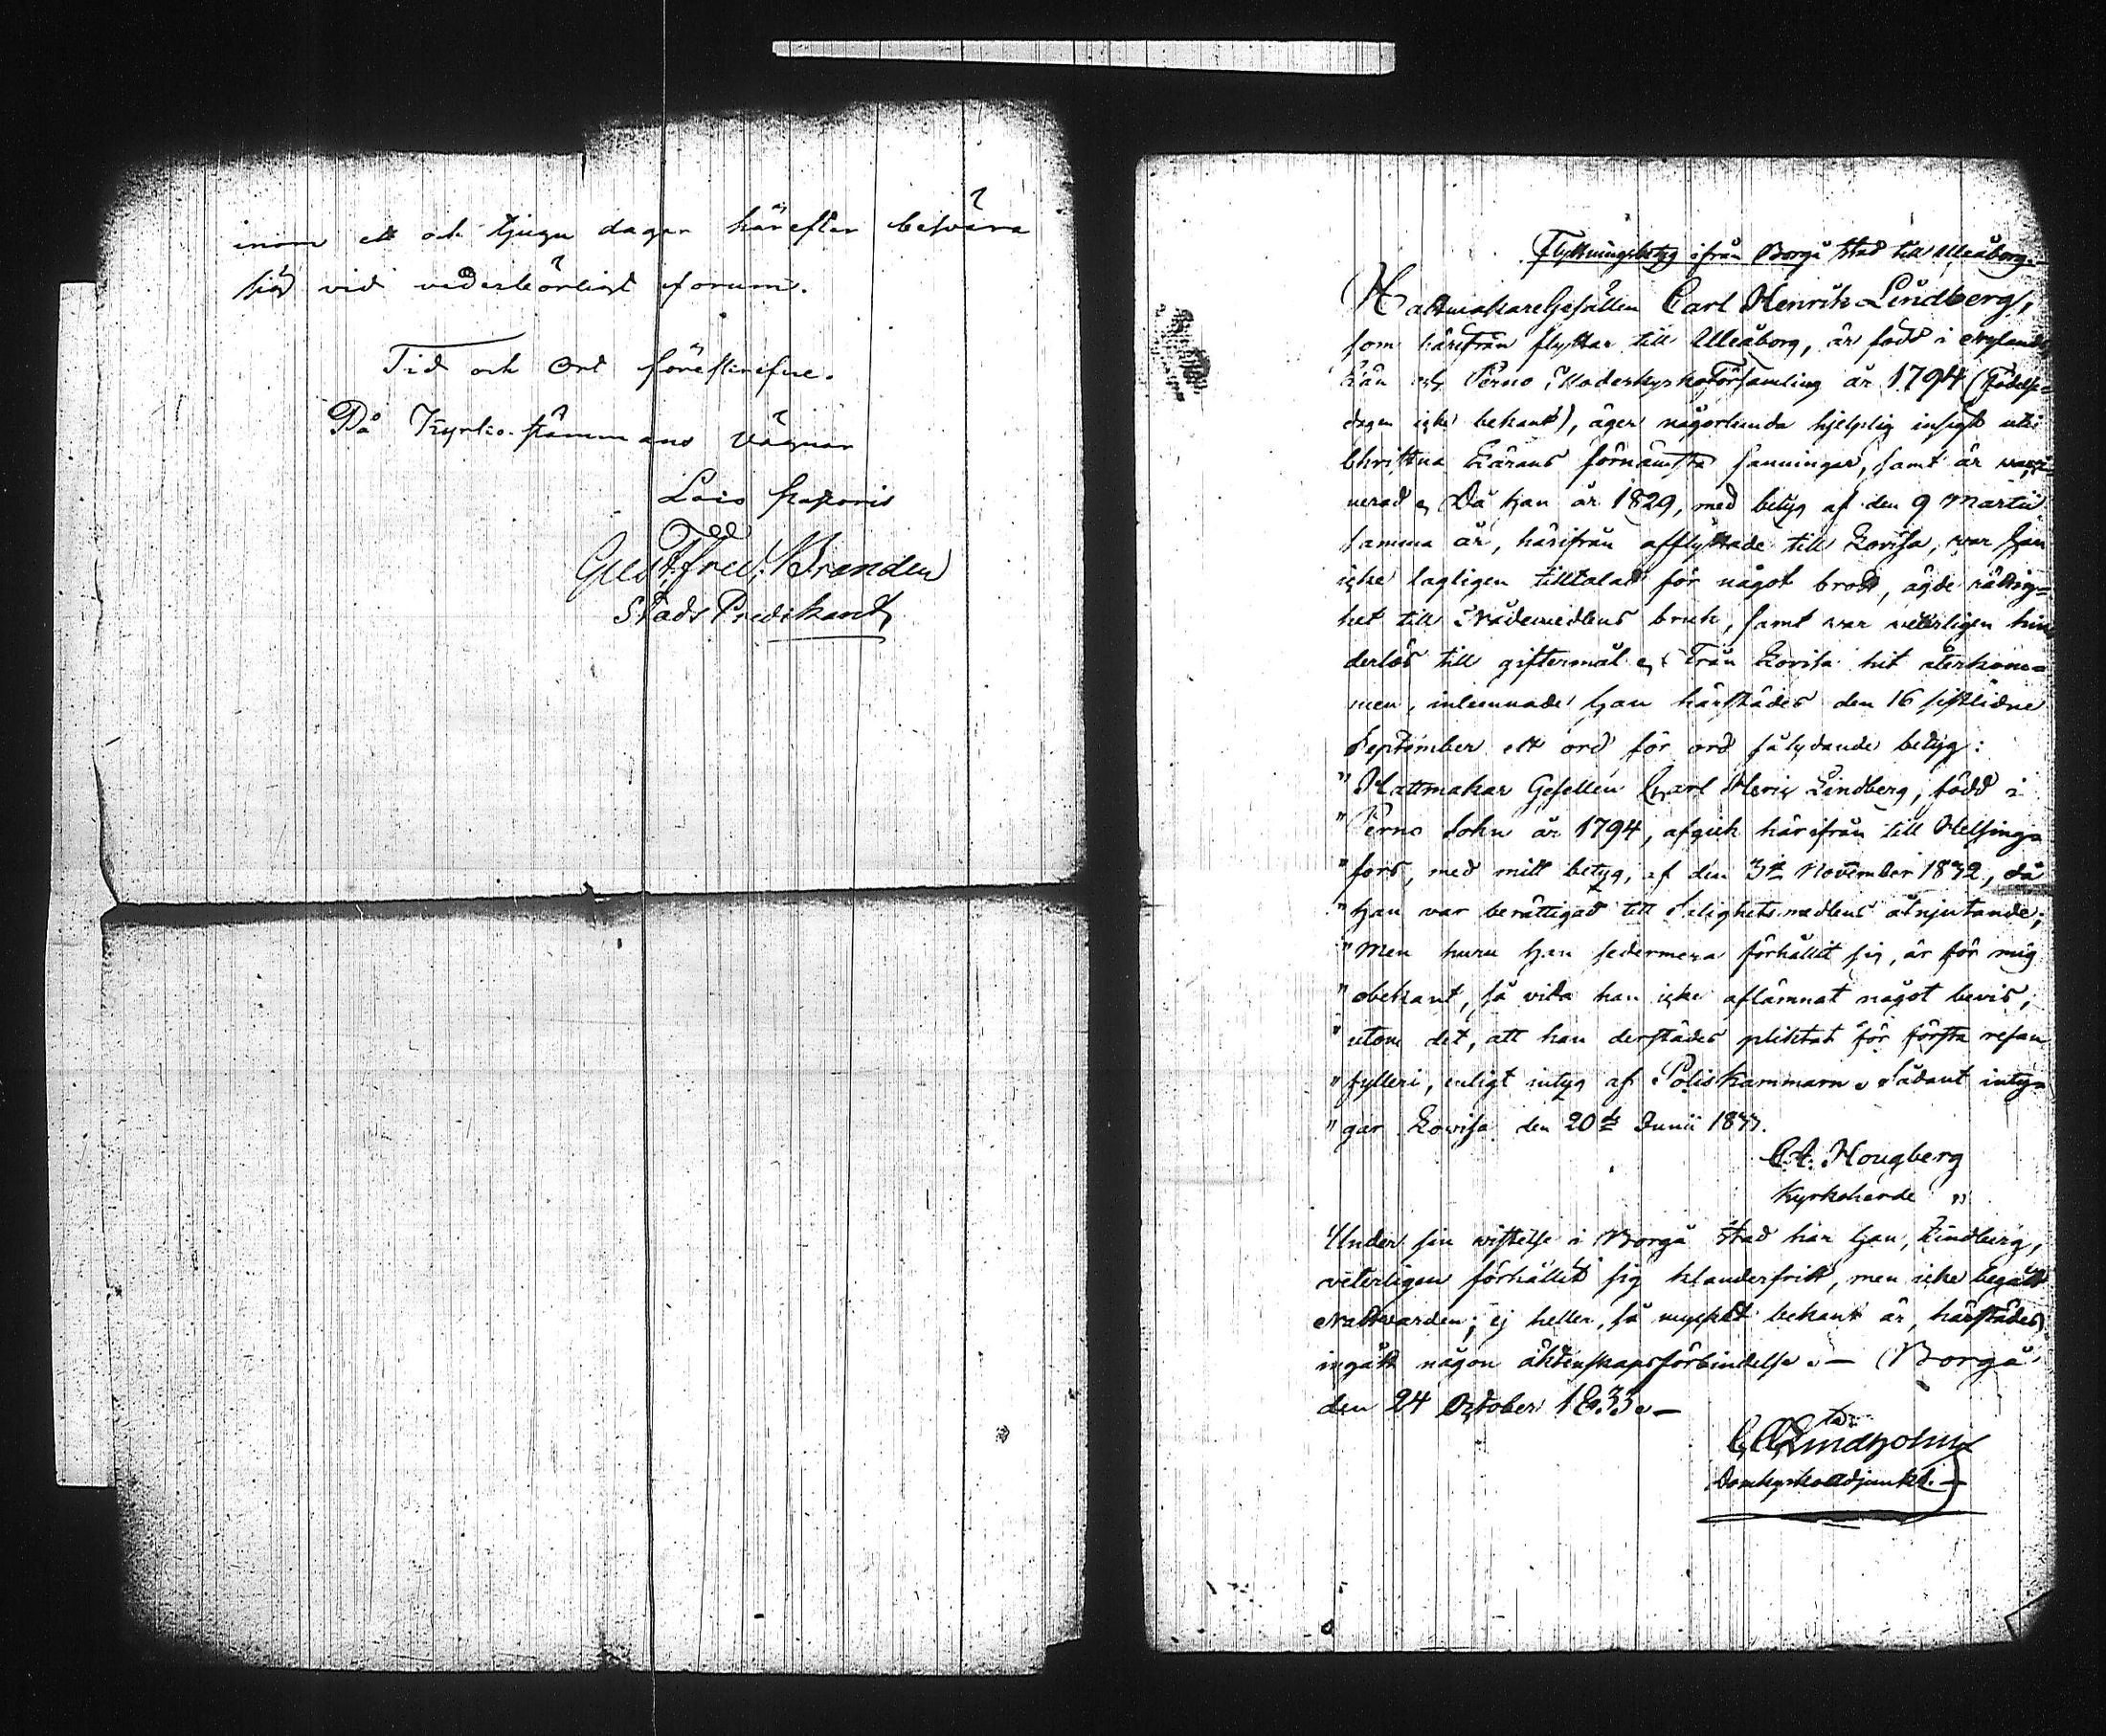 inom ett och tjugu dagar härefter besvära
sig vid vederbörligt forum.
Tid och Ort föreskrefne.
På Kyrko-stämmans vägnar
Gust. Fred. Brander
Stads Predikant
Flyttningsbetyg ifrån Borgå stad till Uleåborg.
Hattmakare Gesällen Carl Henrik Lindberg,
som härifrån flyttar till Uleåborg, är född i Nylands
Län och Perno Moderkyrko Församling år 1794 (Födelse-
dagen icke bekant), äger någorlunda hjelplig insigt uti
Christna Lärans förnämsta sanningar, samt är vacci-
nerad. Då han år 1829, med betyg af den 9 Martii
samma år, härifrån afflyttade till Lovisa, war han
icke lagligen tilltalad för något brott, ägde rättig-
het till Nådemedlens bruk, samt war veterligen hin-
derlös till giftermål. Från Lovisa hit återkom-
men, inlemnade han härstädes den 16 sistlidne
September ett ord för ord så lydande betyg:
"Hattmakar Gesellen Carl Henric Lindberg, född i
"Perno Sokn år 1794, afgick härifrån till Helsing-
"fors, med mitt betyg, af den 3de November 1832, då
"han var berättigad till Salighets medlens åtnjutande;
"Men huru han sedermera förhållit sig, är för mig
"obekant, så vida han icke aflämnat något bevis,
"utom det, att han derstädes pliktat för första resan
"fylleri, enligt intyg af Poliskammarn. Sådant inty-
"gar Lovisa den 20de Junii 1833.
C. A. Hougberg
Kyrkoherde "
Under sin wistelse i Borgå Stad har han, Lindberg,
veterligen förhållit sig klanderfritt, men icke begått
Nattvarden; ej heller, så myckett bekant är, härstädes
ingått någon äktenskapsförbindelse. — Borgå
den 24 October 1833. —
Lindholm
Domkyrko Adjunkt. —